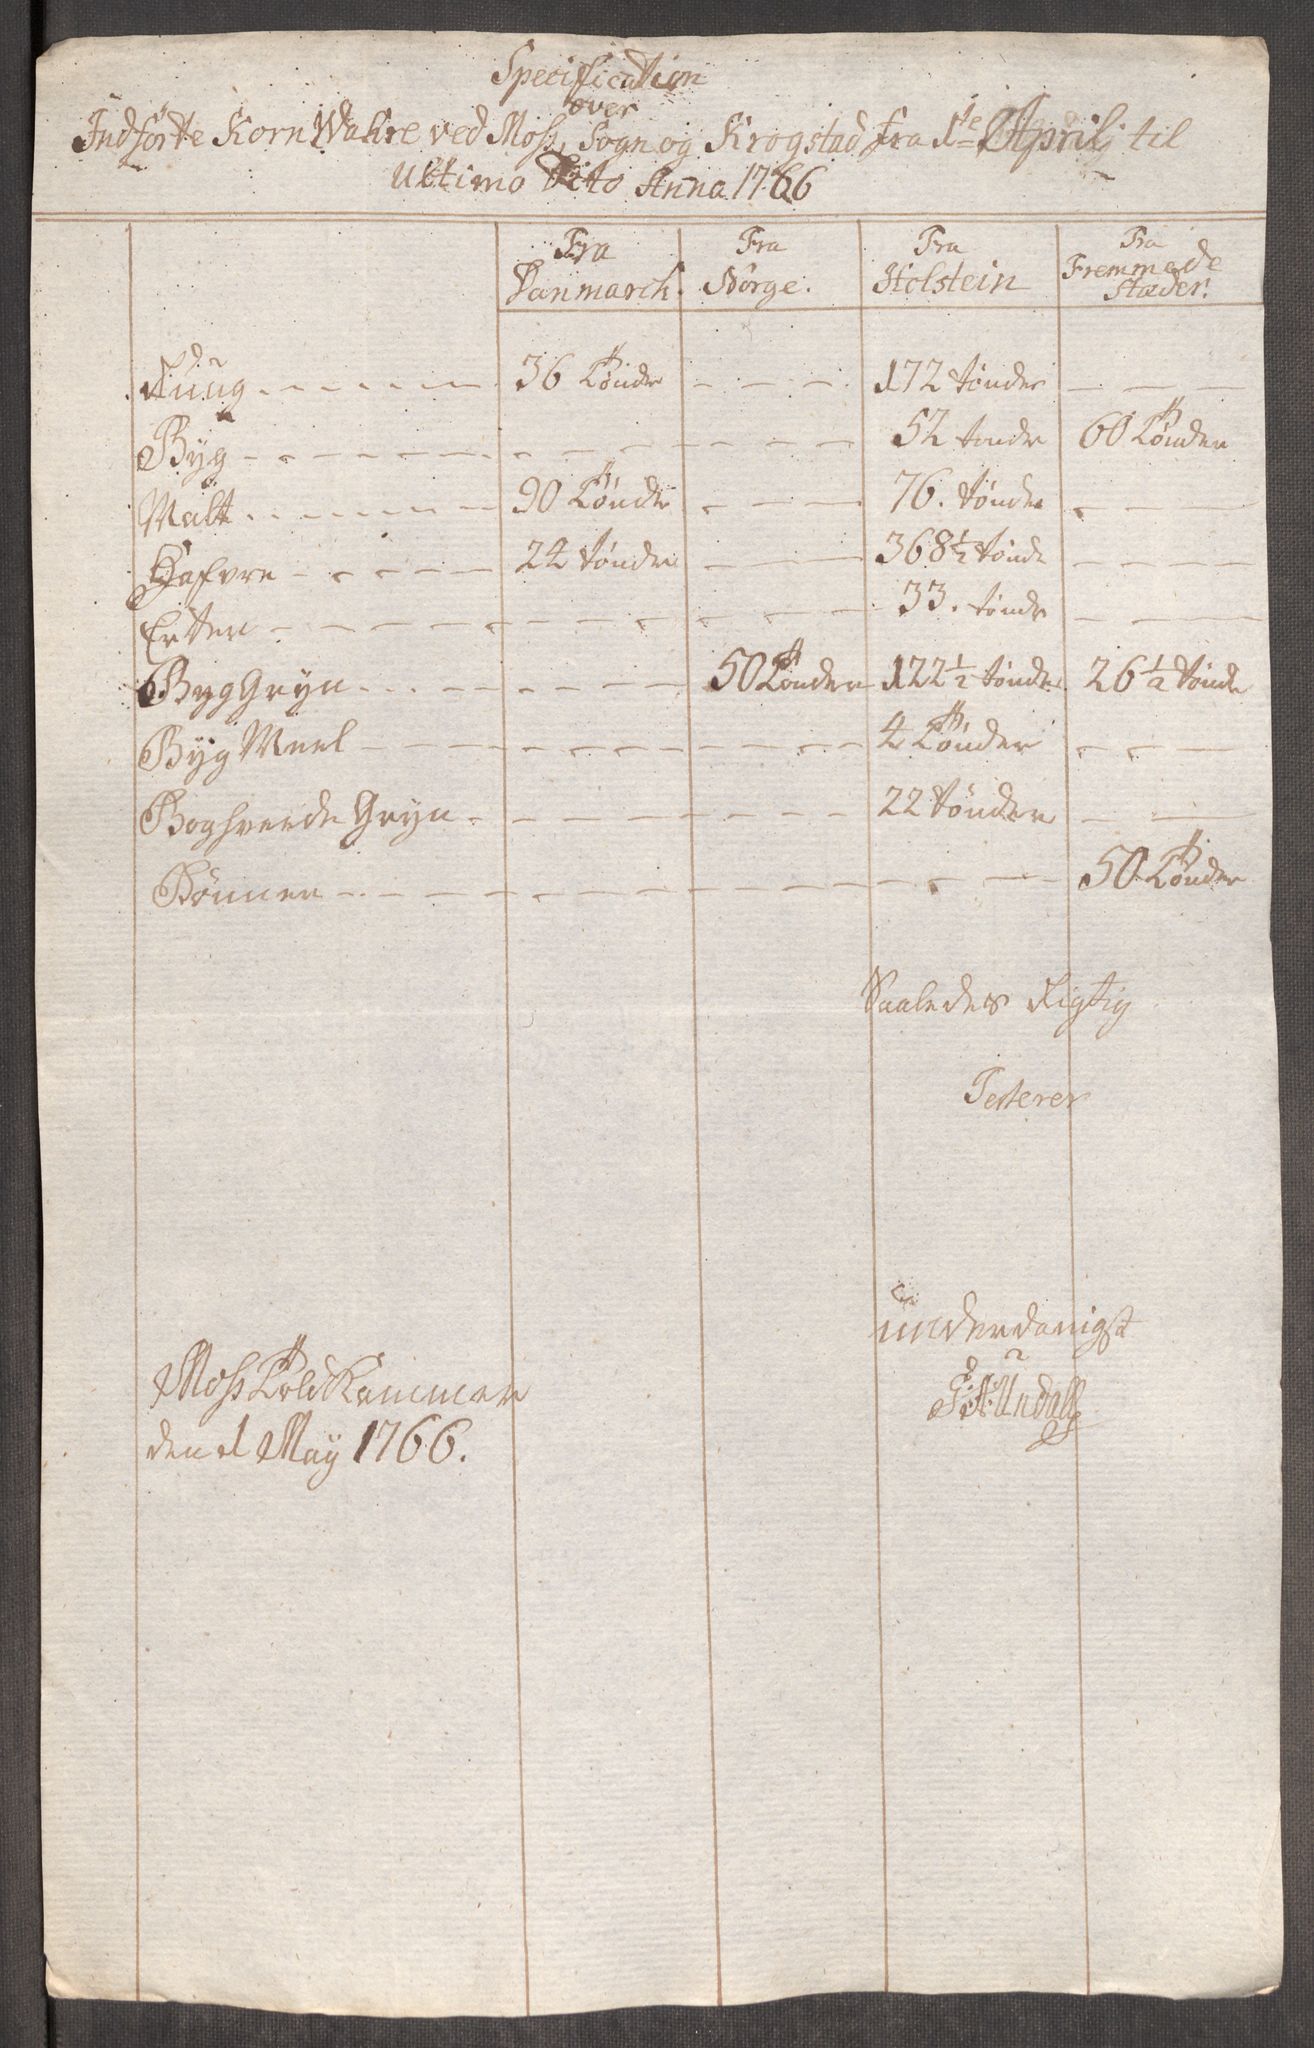 Specification
over
Indförte Korn Wahre ved Moss, Sogn og Krogstad fra 1te April til
Ultimo Dito Anno 1766
Fra Danmarck. Fra Norge. Fra Holstein Fra Fremmede Stæder.
Ruug 36 Tønder 172 tønder
Byg 52 tønde 60 Tønder
Malt 90 Tønde 76. tønde
Hafvre 24 tønde 368½ tønde
Erter 33. tønde
Byg Gryn 50 Tønder 122½ tønde 26½ tønde
Byg Meel 4 Tønder
Boghvede Gryn 22 Tønder
Bønner 50 Tønder
Saaledes Rigtig
Testerer
underdanigst
Moss Told Kammer
den 1 May 1766.